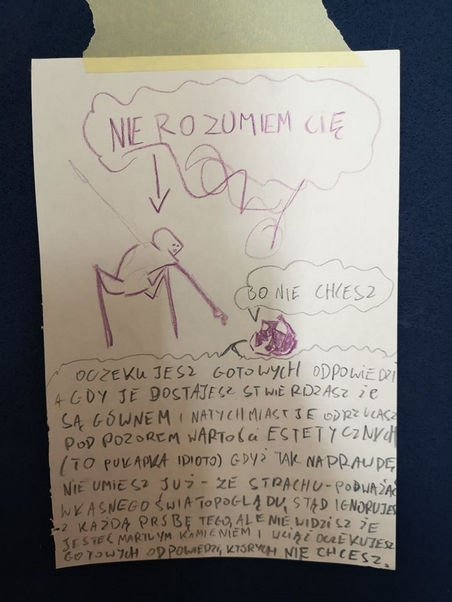 NIE ROZUMIEM CIĘ
BO NIE CHCESZ
OCZEKUJESZ GOTOWYCH ODPOWIEDZI
A GDY JE DOSTAJESZ STWIERDZASZ ŻE
SĄ GÓWNEM I NATYCHMIAST JE ODRZUCASZ
POD POZOREM WARTOŚCI ESTETYCZNYCH
(TO PUŁAPKA IDIOTO) GDYŻ TAK NAPRAWDĘ
NIE UMIESZ JUŻ - ZE STRACHU - PODWAŻAĆ
WŁASNEGO ŚWIATOPOGLĄDU, STĄD IGNORUJESZ
KAŻDĄ PRŚBĘ TEGO, ALE NIE WIDZISZ ŻE
JESTEŚ MARTWYM KAMIENIEM I WCIĄŻ OCZEKUJESZ
GOTOWYCH ODPOWIEDZI, KTÓRYCH NIE CHCESZ.